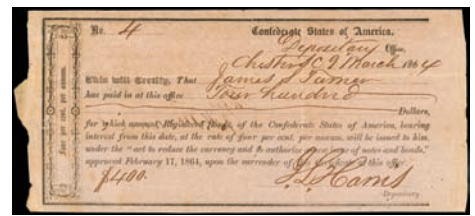 No. 4 Confederate States of America.
Depositary Office,
Chester SC 9 March 1864
This will Certify, That James S Turner
has paid in at this office Four hundred
Dollars,
for which amount, Registered Bonds, of the Confederate States of America, bearing
interest from this date, at the rate of four per cent. per annum, will be issued to him
under the "act to reduce the currency and to authorize a new issue of notes and bonds,"
approved February 17, 1864, upon the surrender of this Certificate at this office.
$400.
Harris
Depositary
four per cent. per annum.